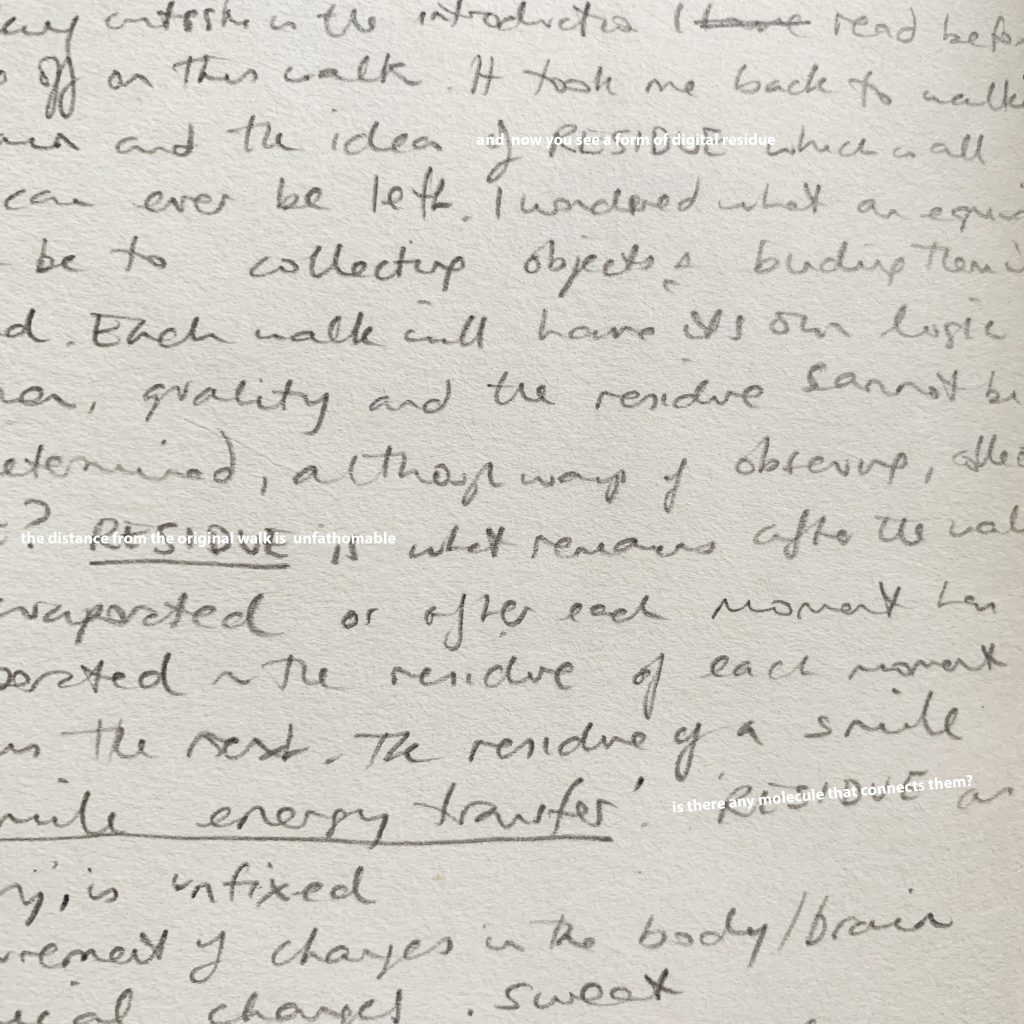 in the introduction I have read
off on this walk. It took me back to
and the idea of RESIDUE which is all
and now you see a form of digital residue
can ever be left. I wondered what an
be to collecting objects & them
d. Each walk will have its own logic
quality and the residue cannot be
although ways of observing,
? RESIDUE is what remains after the
the distance from the original walk is unfathomable
or after each moment has
the residue of each moment
the next. The residue of a smile
energy transfer'. RESIDUE as
is there any molecule that connects them?
is unfixed
of changes in the body/brain
changes. sweat